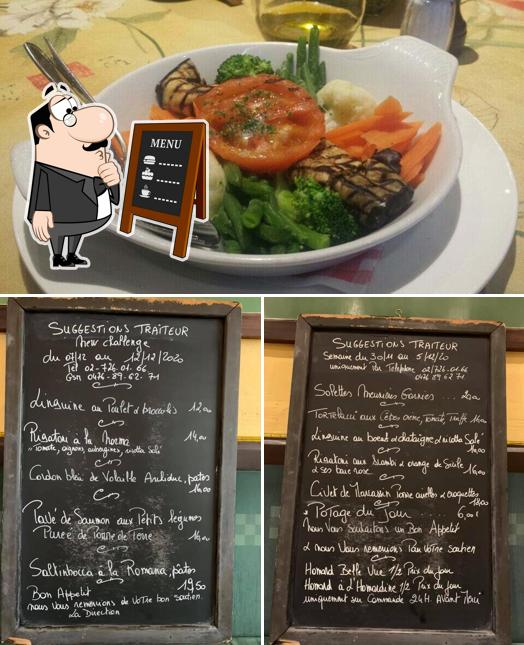 MENU
SUGGESTIONS TRAITEUR
New challenge
du 07/12 au 12/12/2020
Tel 02-726.01.66
Gsn 0476-89-62-71
Linguine au Poulet & broccolis 12,00
Rigatoni à la Norma 14,00
"Tomate, oignons, aubergines, ricotta salé"
Cordon bleu de Volaille Ardidue, pates
Pavé de Saumon aux Petits légumes
Purée de Pomme de Terre
Saltimbocca à la Romana, pates
19,50
Bon Appetit
nous Vous remercions de votre bon soutien.
La Direction
SUGGESTIONS TRAITEUR
Semaine du 30/11 au 5/12/20
uniquement Par Telephone 02/726.01.66
0476 89 62 71
Solettes Meunières Garnies
Tortellini aux Cèpes crème, Tomate, Truffe
Linguine au boeuf & chataigne & ricotta Salé
Rigatoni aux Scampi & orange de Sicile
& ses baie rose
Civet de Marcassin Pomme airelles & croquettes
* Potage du Jour 6,00
nous Vous Souhaitons un Bon Appetit
& nous Vous remercions Pour Votre Soutien
Homard Belle Vue 1/2 Prix du Jour
Homard à l'Armoricaine 1/2 Prix du jour
uniquement sur Commande 24H. Avant Merci